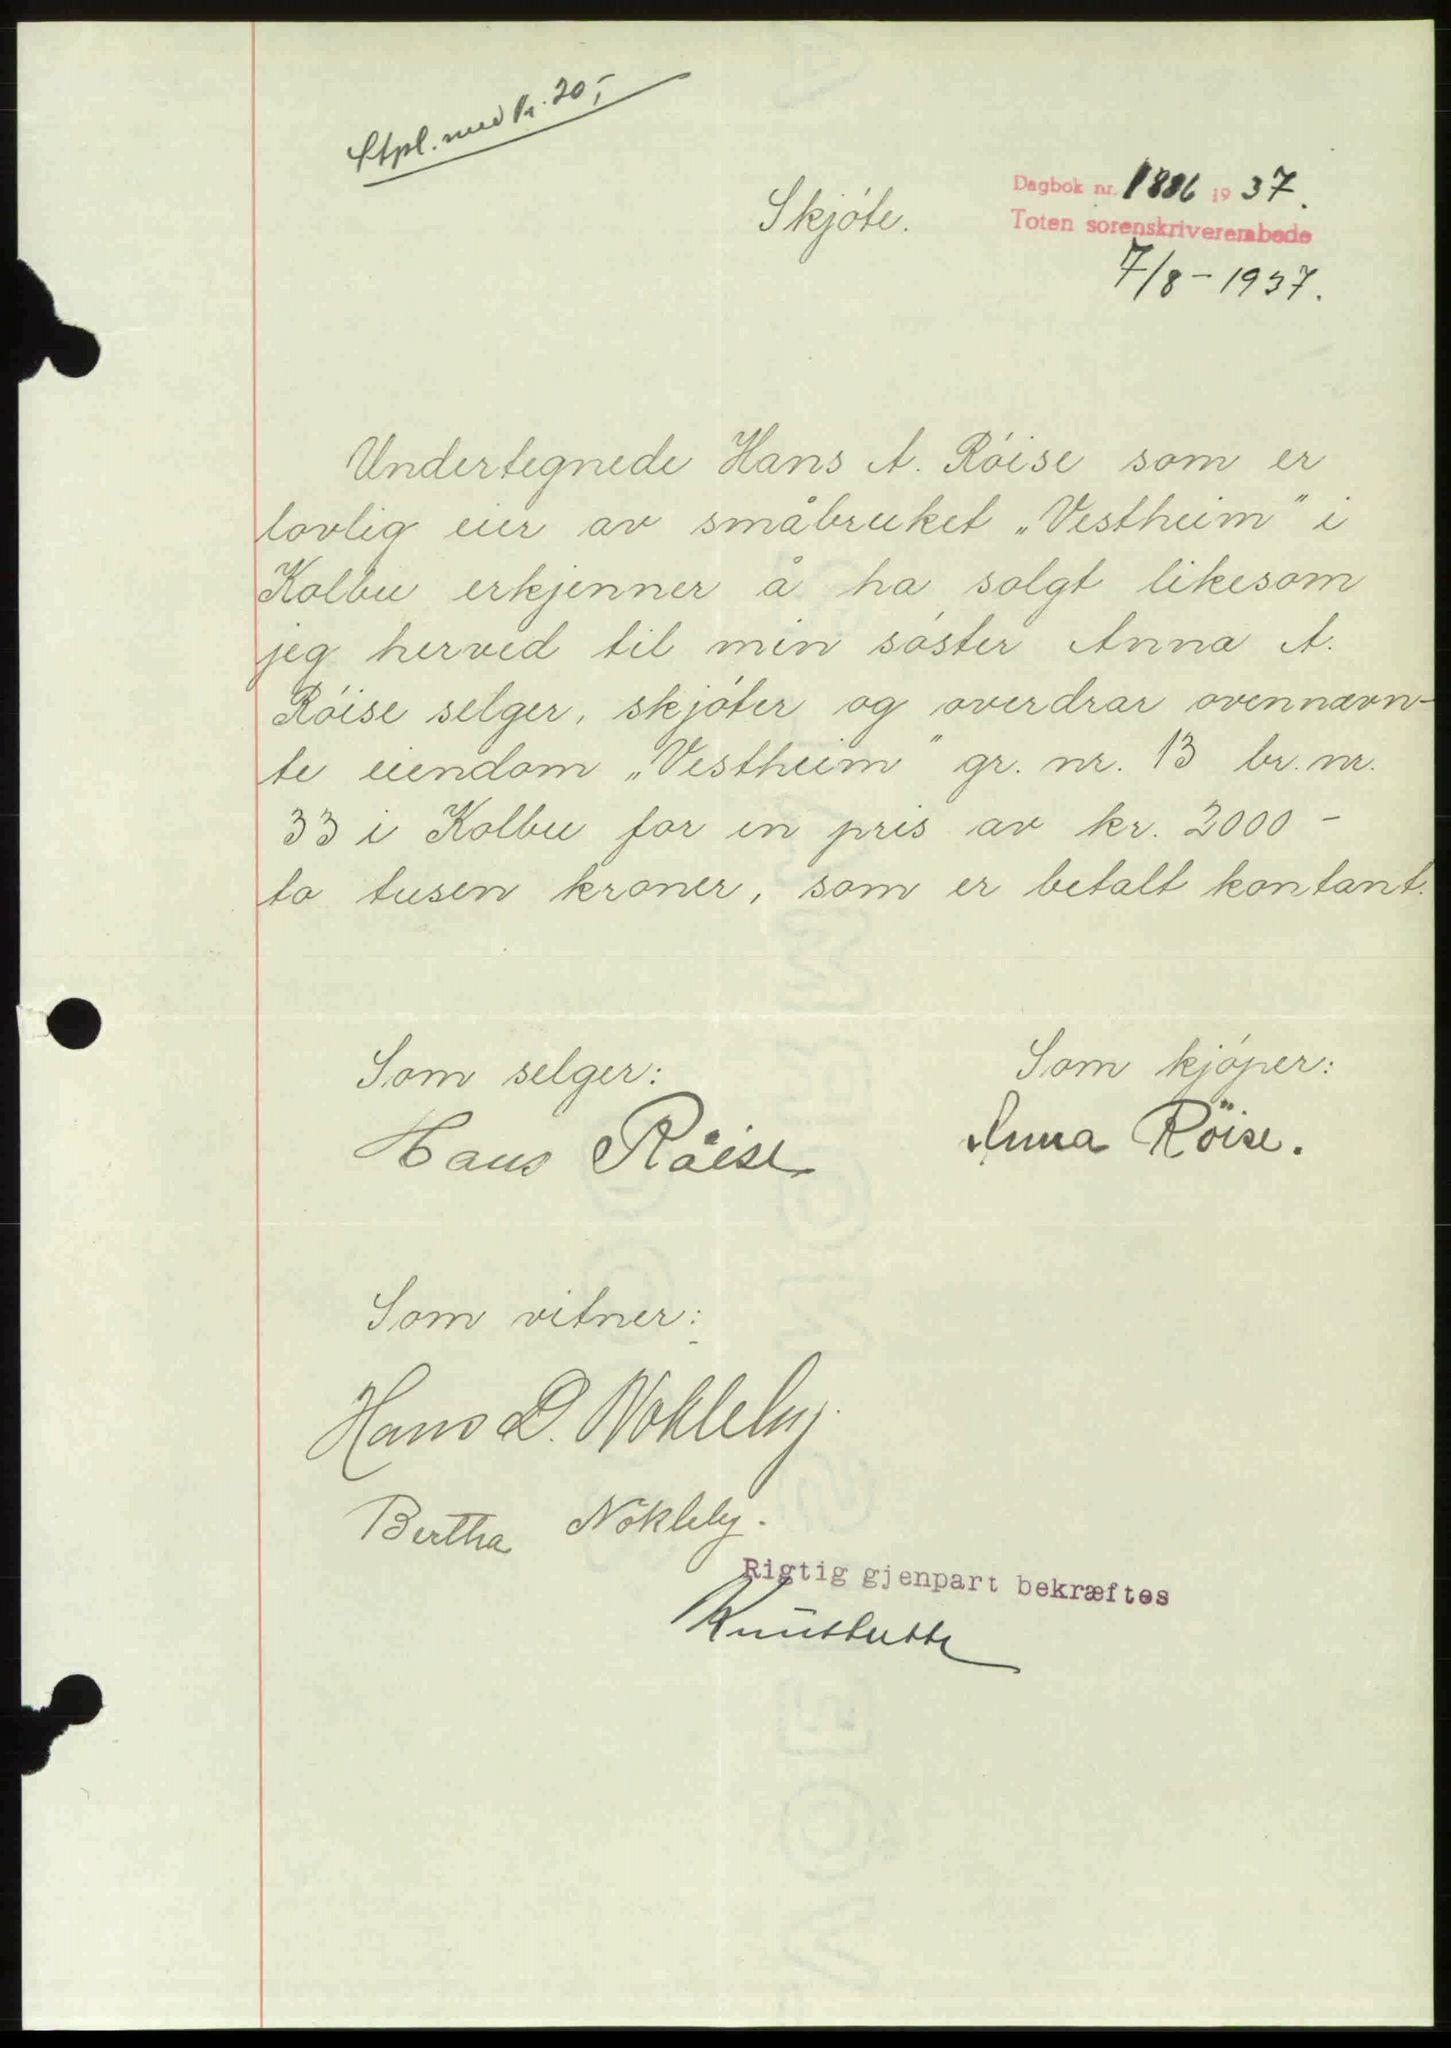 Stpl. med kr. 20,-
Skjóte.
Dagbok nr. 1886 1937.
Toten sorenskriverembede
7/8-1937.
Undertegnede Hans A. Róise som er
lovlig eier av småbruket „Vestheim" i
Kolbu erkjenner å ha solgt likesom
jeg herved til min sóster Anna A.
Róise selger, skjóter og overdrar ovennævn-
te eiendom „Vestheim" gr. nr. 13 br. nr.
33 i Kolbu for en pris av kr. 2000 -
to tusen kroner, som er betalt kontant.
Som selger:
Som kjóper:
Hans Röise
Anna Röise.
Som vitner:
Hans D. Nökleby.
Bertha Nökleby.
Rigtig gjenpart bekræftes